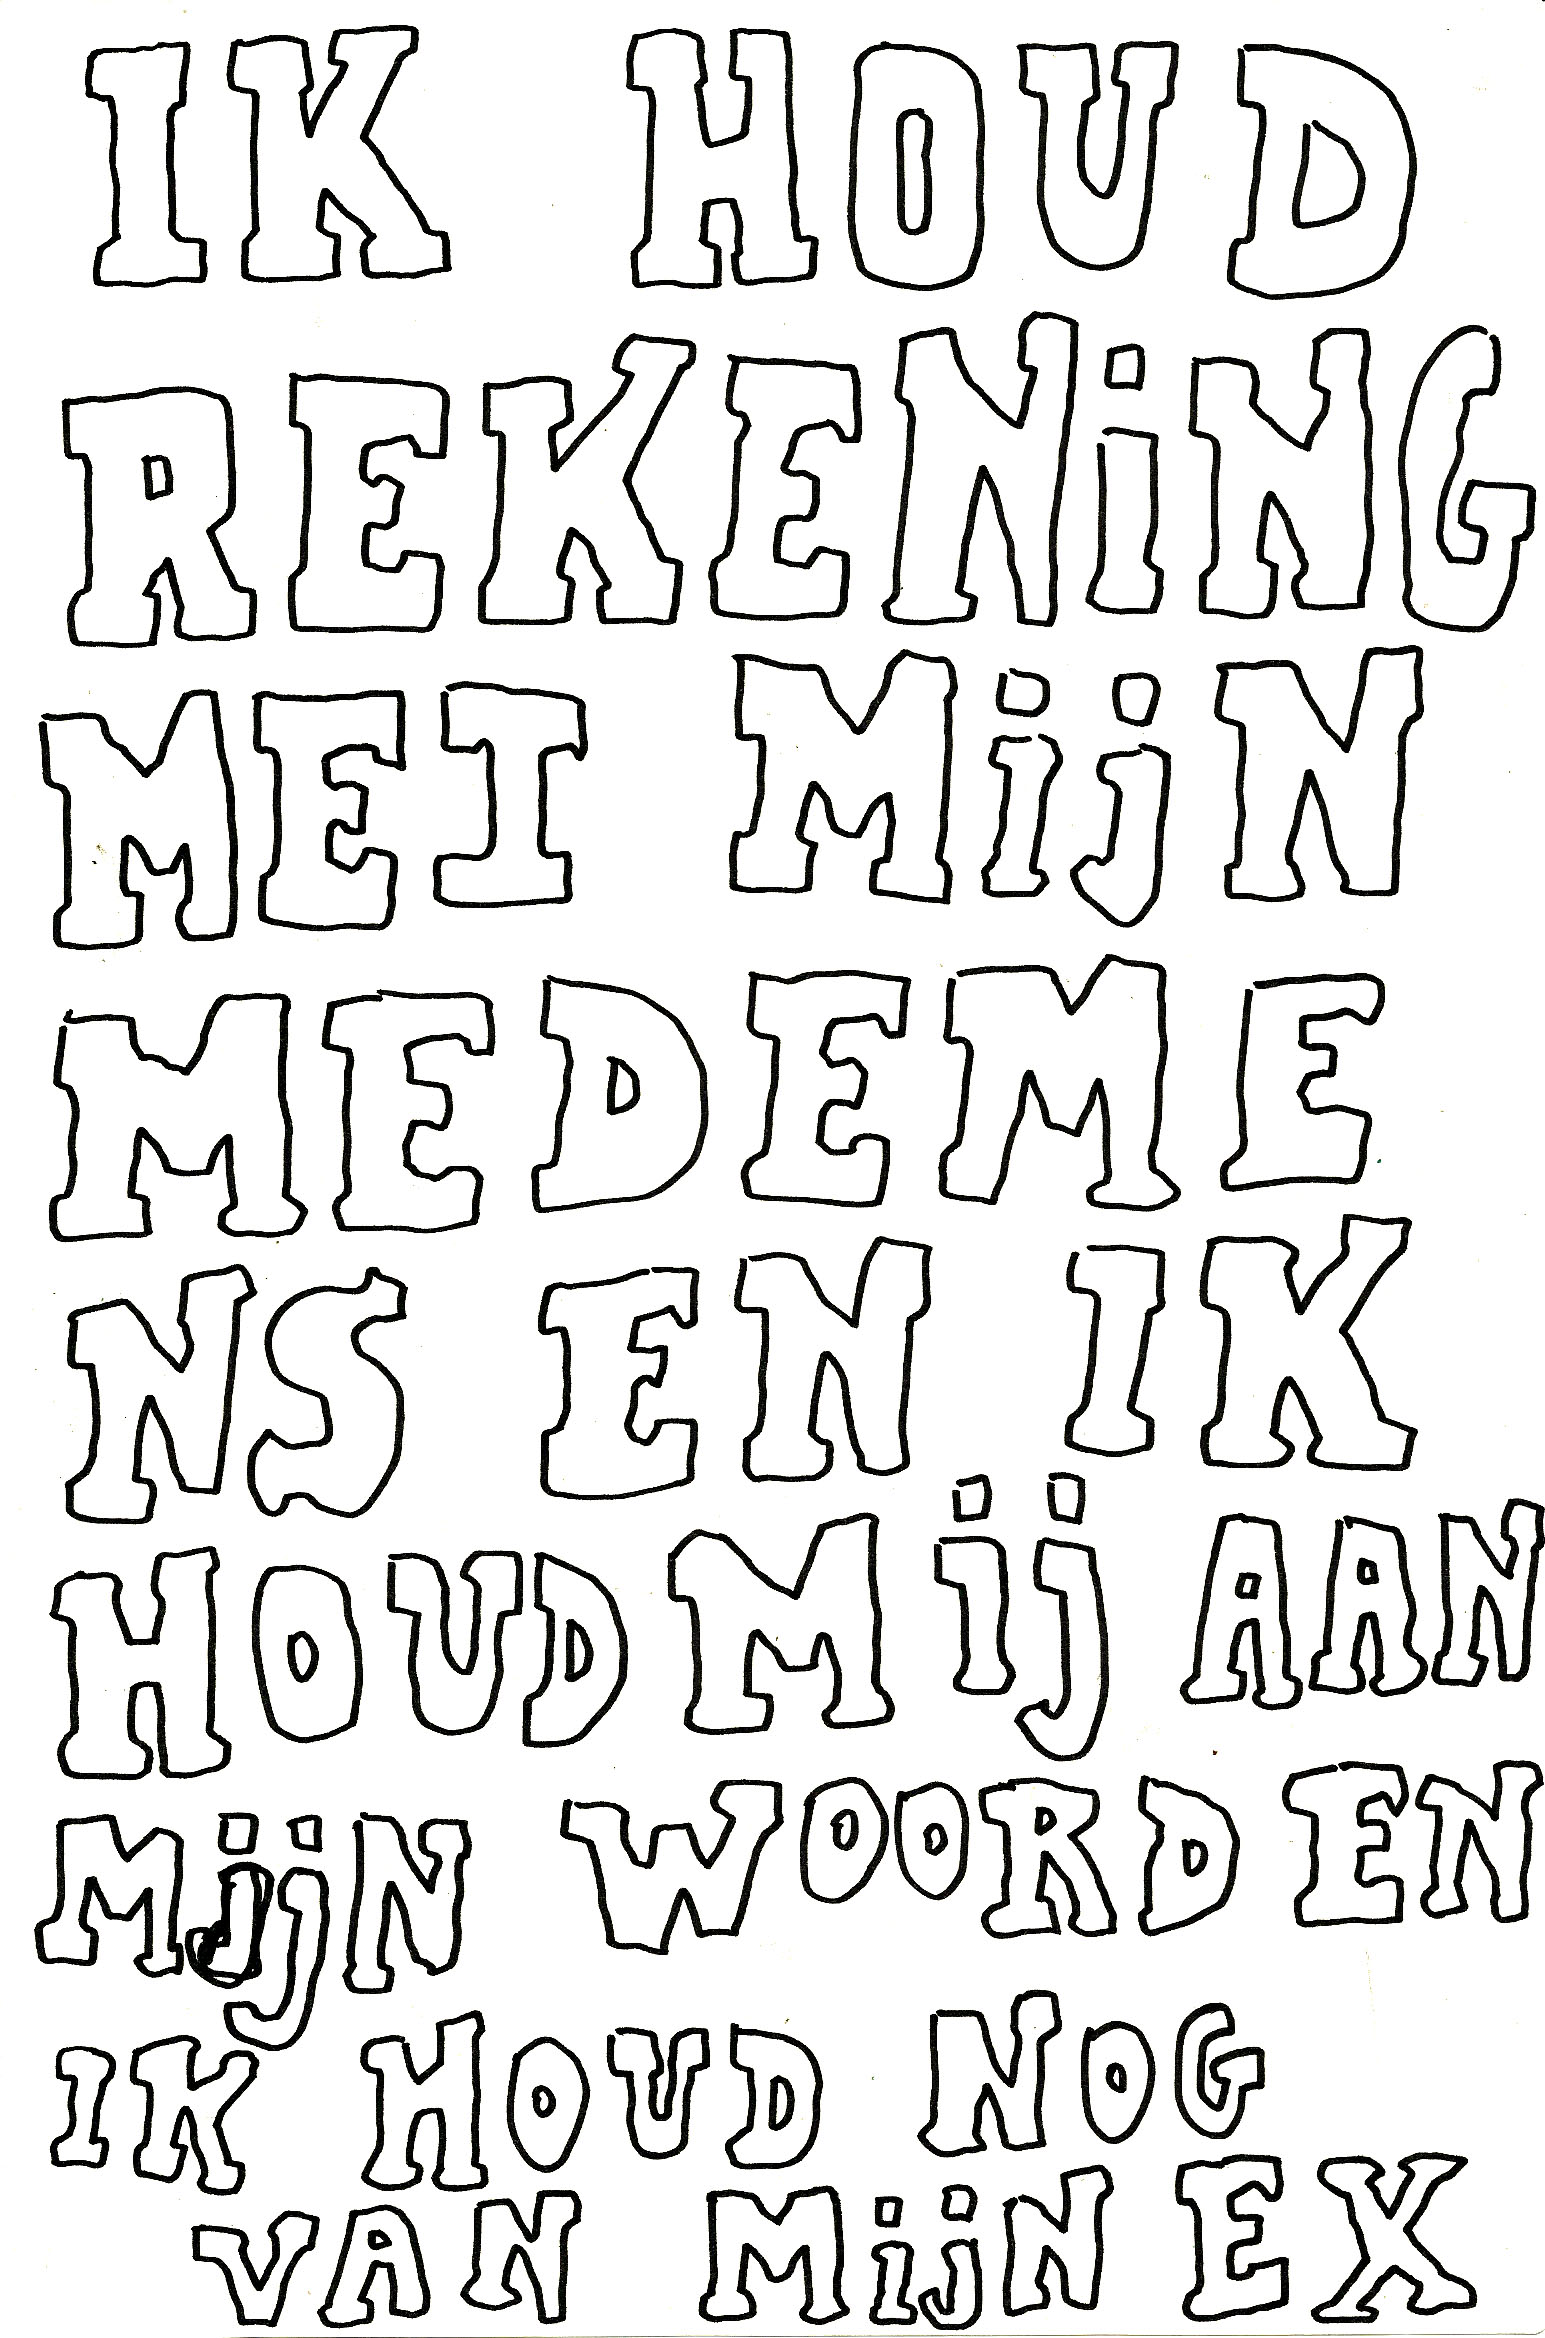 IK HOUD
REKENiNG
MEI MijN
MEDEME
NS EN IK
HOUD Mij AAN
MijN WOORDEN
IK HOUD NOG
VAN MijN EX